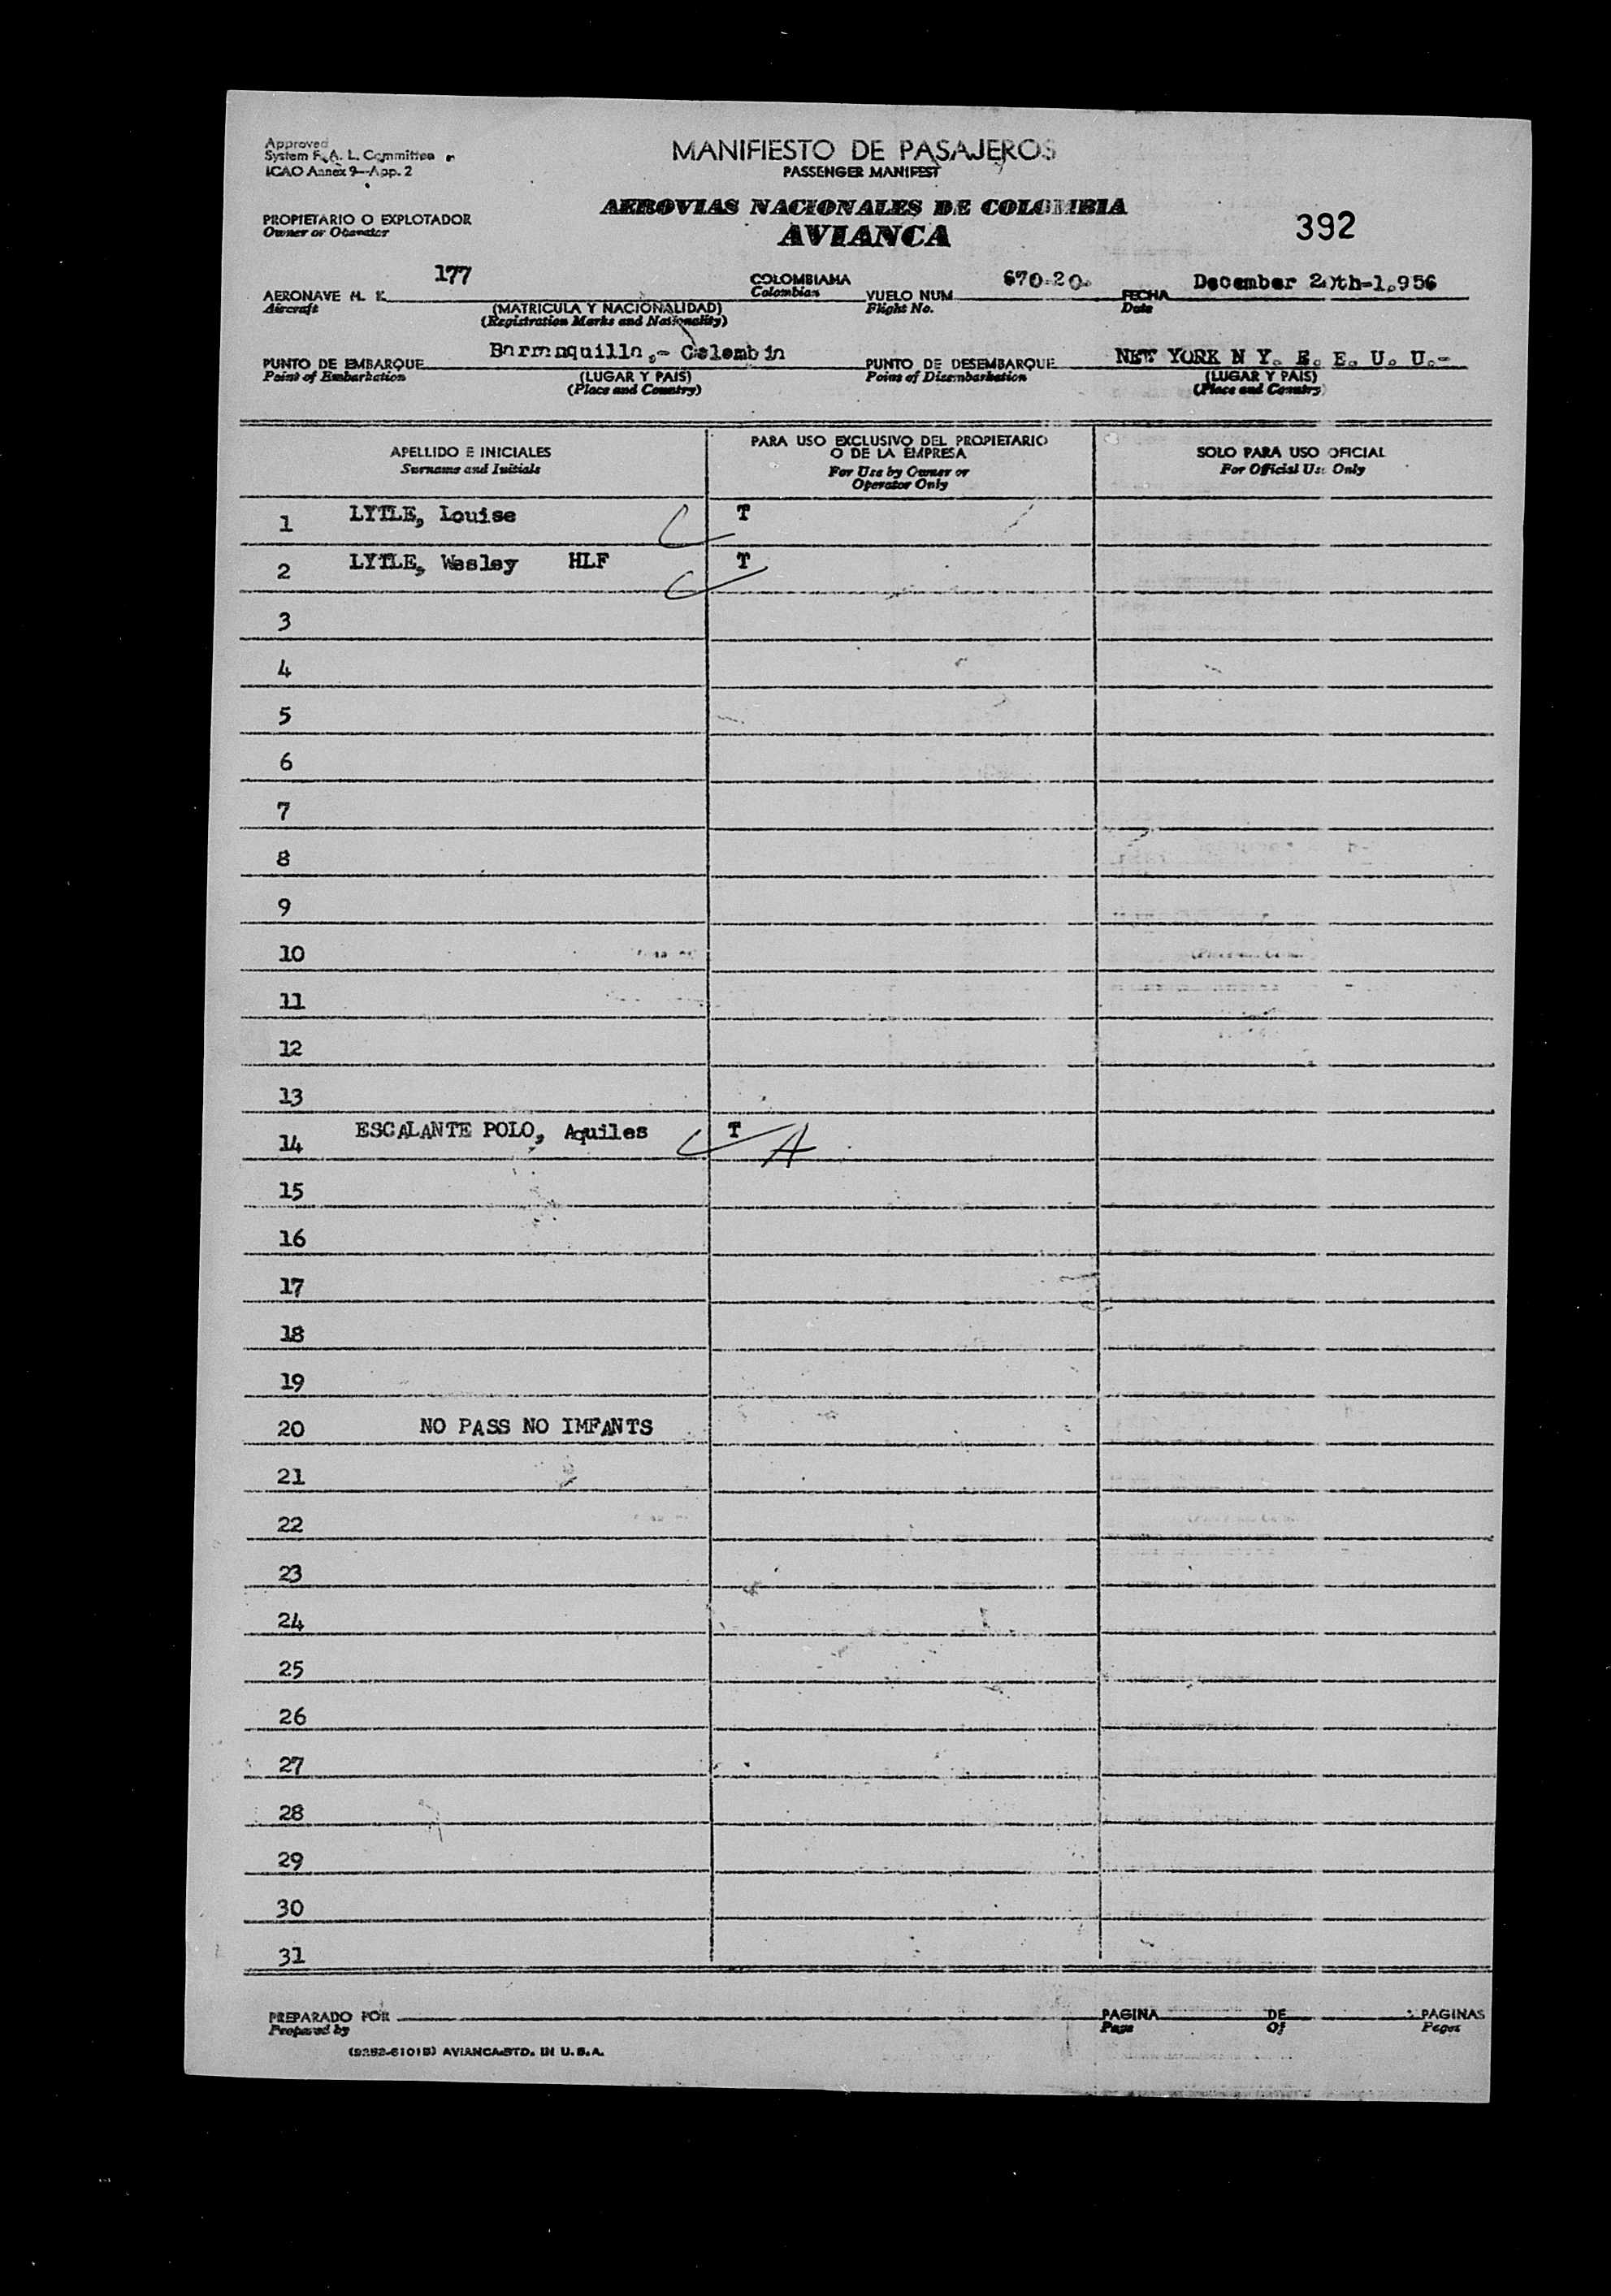 Approved
System F. A. L. Committee
ICAO Annex 9—App. 2
MANIFIESTO DE PASAJEROS
PASSENGER MANIFEST
PROPIETARIO O EXPLOTADOR
Owner or Operator
AEROVIAS NACIONALES DE COLOMBIA
AVIANCA
392
AERONAVE H. K. 177 COLOMBIANA VUELO NUM 670-20. FECHA December 20th-1.956
Aircraft (MATRICULA Y NACIONALIDAD) Colombian Flight No. Date
(Registration Marks and Nationality)
PUNTO DE EMBARQUE Barranquilla.- Colombia PUNTO DE DESEMBARQUE NEW YORK N Y. E. E. U. U.-
Point of Embarkation (LUGAR Y PAIS) Point of Disembarkation (LUGAR Y PAIS)
(Place and Country) (Place and Country)
APELLIDO E INICIALES
Surname and Initials
PARA USO EXCLUSIVO DEL PROPIETARIO
O DE LA EMPRESA
For Use by Owner or
Operator Only
SOLO PARA USO OFICIAL
For Official Use Only
1 LYTLE, Louise T
2 LYTLE, Wesley HLF T
3
4
5
6
7
8
9
10
11
12
13
14 ESCALANTE POLO, Aquiles T A
15
16
17
18
19
20 NO PASS NO IMFANTS
21
22
23
24
25
26
27
28
29
30
31
PREPARADO POR PAGINA DE PAGINAS
Prepared by Page Of Pages
AVIANCA STD. IN U. S. A.